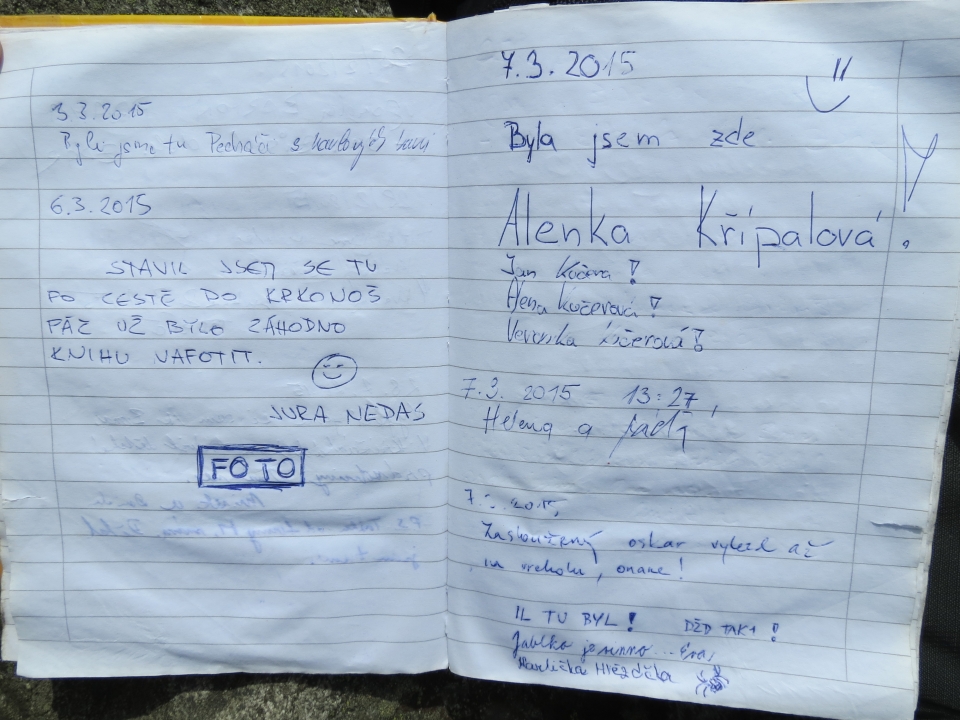 3.3.2015
Byli jsme tu Pecháči s
6.3.2015
STAVIL JSEM SE TU
PO CESTĚ DO KRKONOŠ
PÁČ UŽ BYLO ZÁHODNO
KNIHU NAFOTIT.
JURA NEDAS
FOTO
7.3.2015
Byla jsem zde
Alenka Křípalová.
Jan Kučera!
Alena Kučerová!
Veronika Kučerová!
7.3. 2015 13:27
Helena a
2015
Zasloužený oskar vylezl až
na vrcholu,
IL TU BYL! DĚD TAKY!
Jablko